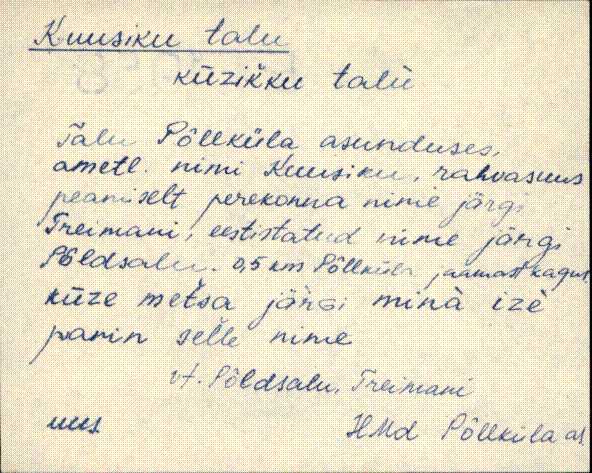 Kuusiku talu
küzikku talù
Talu Põllküla asunduses,
ametl. nimi Kuusiku, rahvasuus
peamiselt perekonna nime järgi
Treimani, eestistatud nime järgi
Põldsalu. 0,5 km Põllküla jaamast kagus.
küze metsa järgi minà izè
panin selle nime
vt. Põldsalu, Treimani
uus.
HMd Põllküla as.